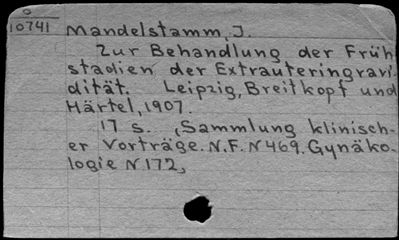 O
10741
Mandelstamm, J.
Zur Behandlung der Früh
stadien der Extrauteringravi-
dität. Leipzig, Breitkopf und
Härtel, 1907.
17 s. (Sammlung klinisch-
er Vorträge. N.F. N469. Gynäko-
logie N172)